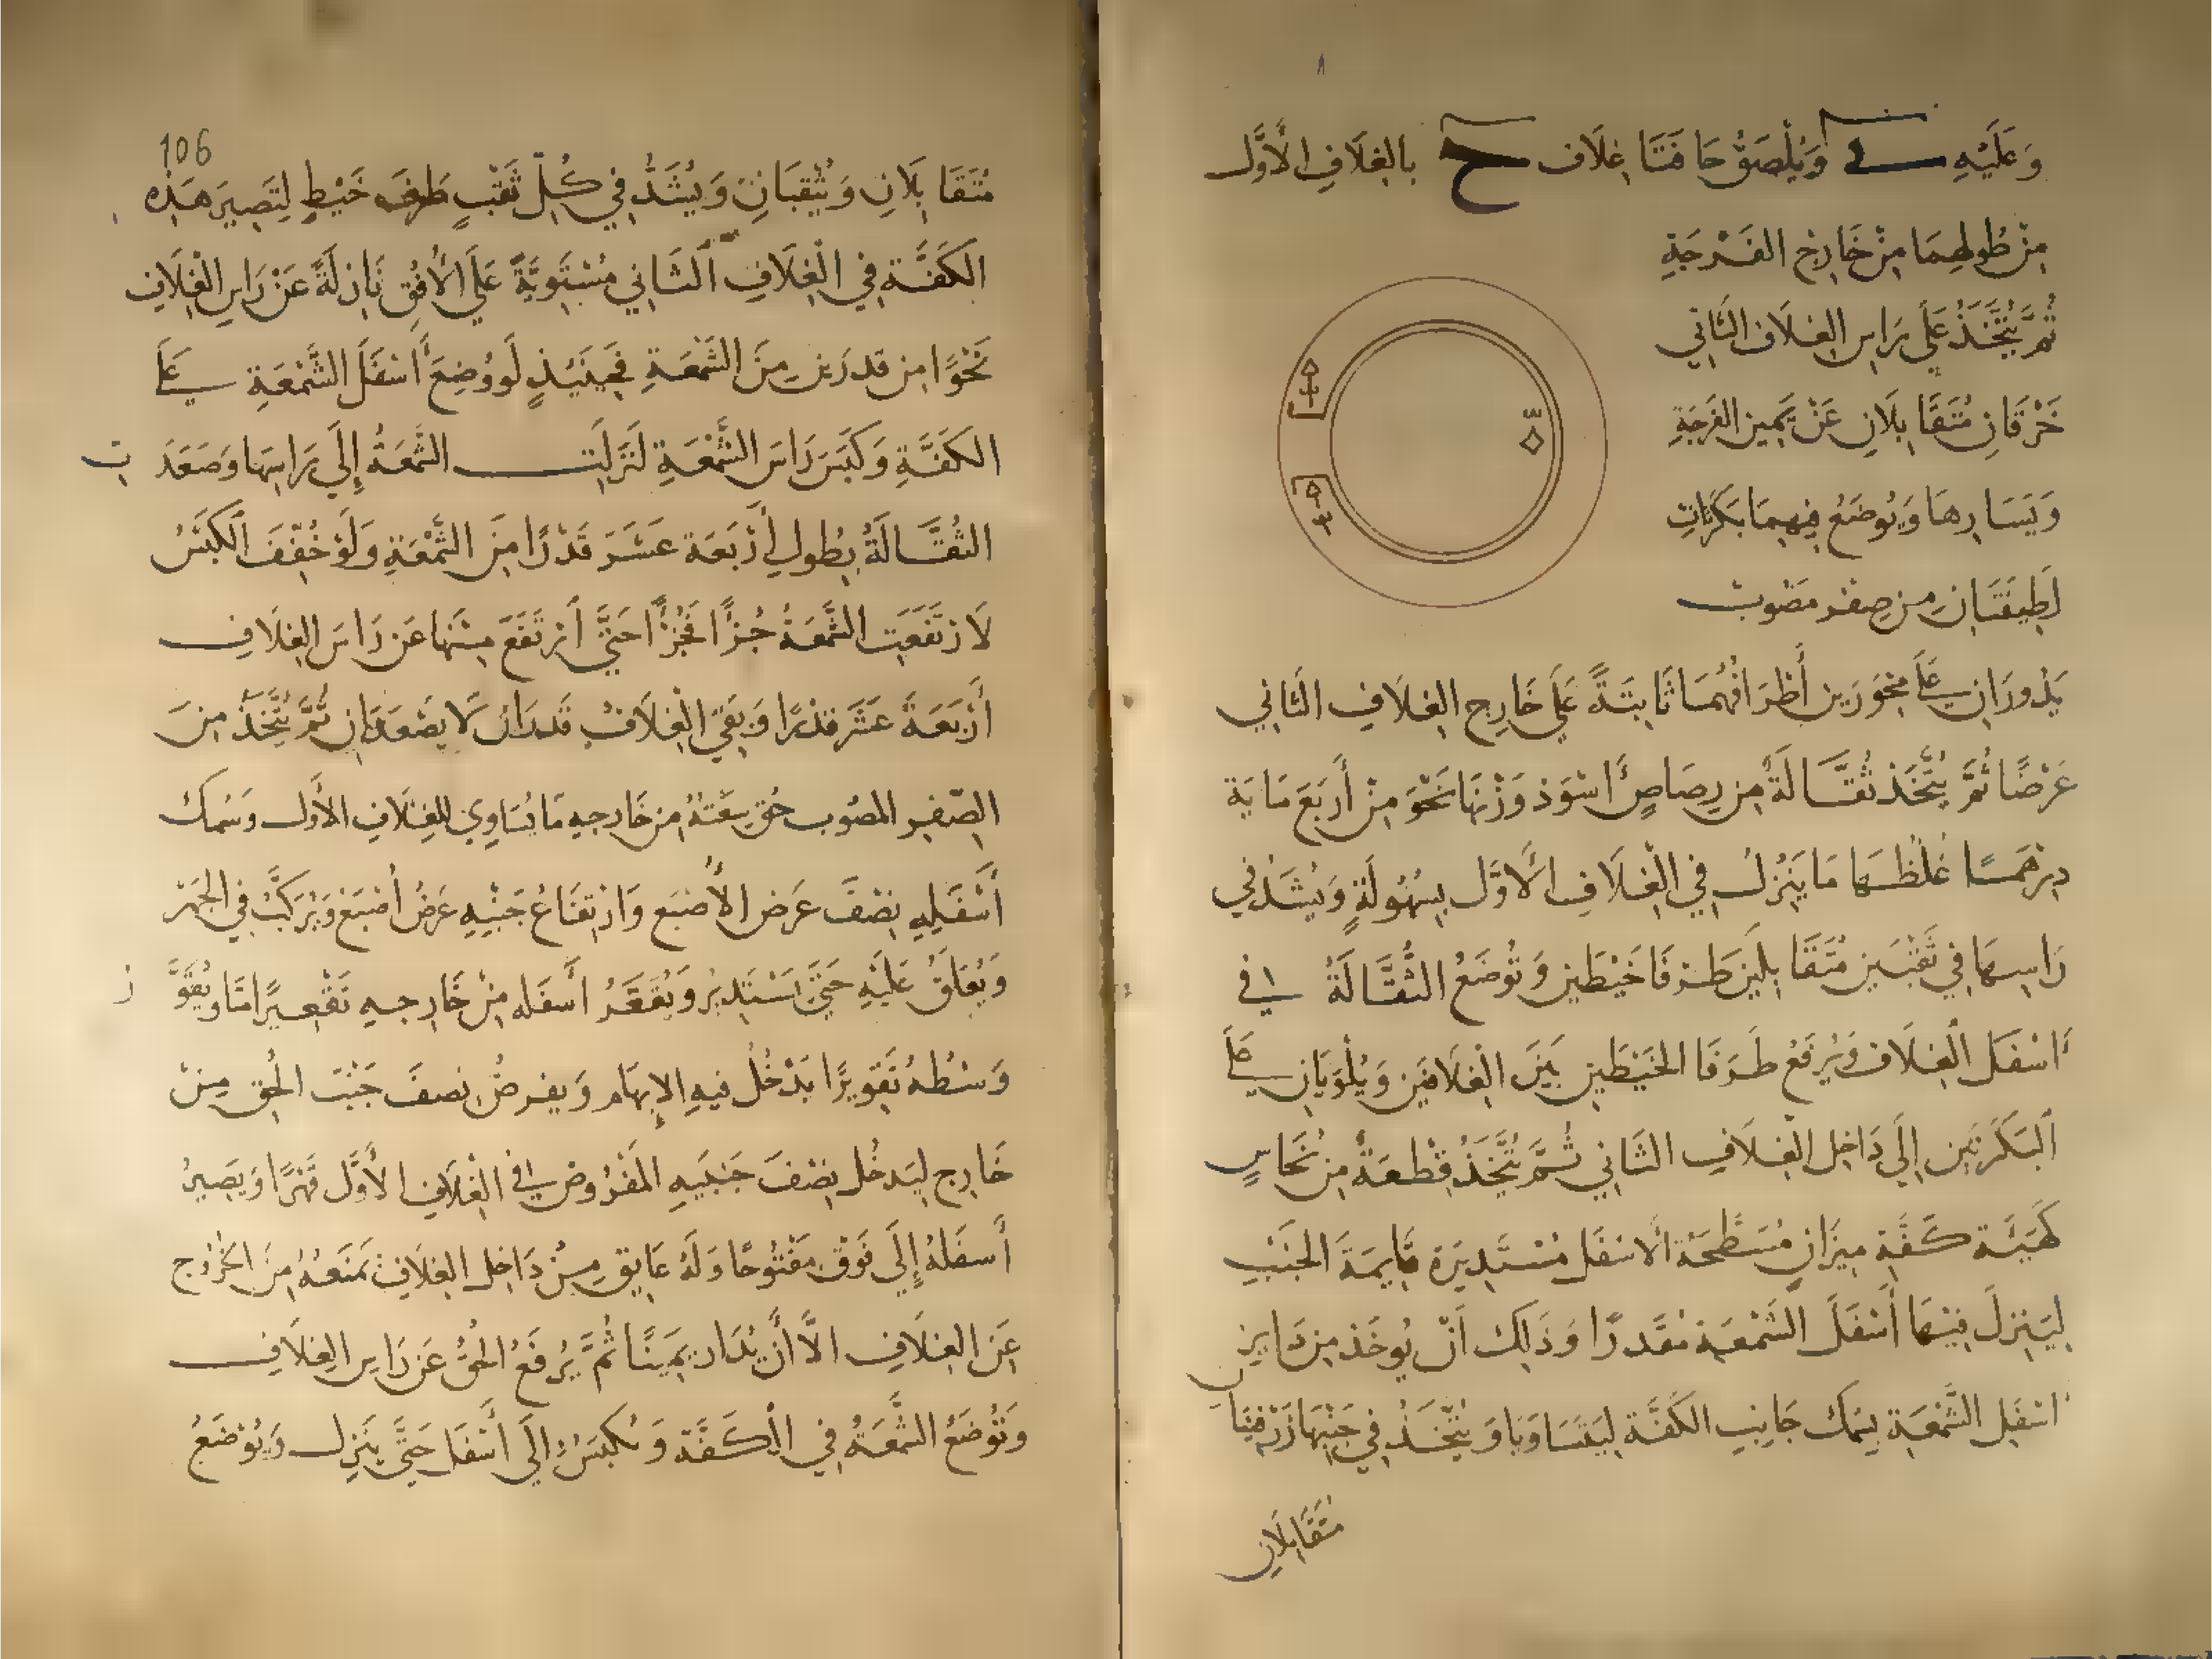 وَعَلَيْهِ وَيُلْصَقُ حَافَتَا غِلَاف ح بالغِلَافِ الأَوَّل
مِنْ طُولِهِمَا مِنْ خَارِج الفَرْجَةِ
ثُمَّ يُتَّخَذُ عَلَى رَاسِ الغِلَاف الثَّانِي
خَرْقَانِ مُتَقَابِلَانِ عَنْ يَمِين الفَرْجَةِ
وَيَسَارِهَا وَيُوضَعُ فِيهِمَا بَكَرَتَانِ
لَطِيفَتَانِ مِن صِفْر مَصْبُوب
يَدُورَانِ عَلَى مِحْوَرَيْنِ أَطْرَافُهُمَا ثَابِتَةً عَلَى خَارِج الغِلَافِ الثَّانِي
عَرْضًا ثُمَّ يُتَّخَذ ثُقَّالَةً مِن رِصَاصٍ اسْوَد وَزْنُهَا نَحْوَ مِنْ أَرْبَعَ مَايَة
دِرْهَمًا غِلْظُهَا مَا يَنْزِل فِي الْغِلَافِ الأَوَّل بِسُهُولَةٍ وَيُشَدّ فِي
رَاسِهَا فِي ثَقْبَيْن مُتَقَابِلَيْن طَرَفَا خَيْطَيْن وَتُوضَعُ الثُّقَّالَةُ فِي
اسْفَل الْغِلَاف وَيُرْفَعُ طَرَفَا الخَيْطَيْنِ بَيْنَ الْغِلَافَيْن وَيُلْوَيَانِ عَلَى
البَكَرَتَيْن إِلَى دَاخِل الْغِلَافِ الثَّانِي ثُمَّ يُتَّخَذُ قِطْعَةً مِن نُحَاسٍ
كَهَيْئَة كَفَّة مِيزَانٍ مُسَطَّحَة الاسْفَل مُسْتَدِيرَة قَايِمَة الجَنْبِ
لِيَنْزِلَ فِيهَا أَسْفَلَ الشَّمْعَة مُقَدَّرًا وَذَلِك أَنْ يُوخَذ مِن دَايِر
اسْفَل الشَّمْعَة بِسُمْك جَانِبِ الكَفَّة لِيَتَسَاوَيَا وَيُتَّخَذُ فِي جَنْبِهَا زَرْفِينَا
مُتَقَابِلَانِ
106
مُتَقَابِلَانِ وَيُثْقَبَانِ وَيُشَدُّ فِي كُلّ ثَقْبٍ طَرف خَيْطٍ لِتَصِيرَ هَذِه
الكَفَّة فِي الْغِلَافِ الثَّانِي مُسْتَوِيَّةً عَلَى الأُفُقِ نَازِلَةً عَنْ رَاسِ الْغِلَافِ
نَحْوًا مِن قَدْرَيْنِ مِنَ الشَّمْعَةِ فَحِينَيِذٍ لَو وُضِعَ أَسْفَلَ الشَّمْعَةِ عَلَى
الكَفَّةِ وَكُبِسَ رَاسَ الشَّمْعَةِ لَنَزَلَت الشَّمْعَةُ إِلَى رَاسِهَا وَصَعَدَت
الثُّقَّالَةُ بِطُولِ أَرْبَعَة عَشَرَ قَدْرًا مِنَ الشَّمْعَةِ وَلَوْ خُفِّفَ الكَبْسُ
لَارْتَفَعَت الشَّمْعَةُ جُزْاً فَجُزْاً حَتَّى ارْتَفَعَ مِنْهَا عَن رَاسَ الغِلَافِ
أَرْبَعَةَ عَشَرَ قَدْرًا وَبَقِيَ الْغِلَاف قَدْرَان لَا يَصْعَدَانِ ثُمَّ يُتَّخَذُ مِنَ
الصِّفر المصْبُوب حُقّ سِعَتُهُ مِن خَارِجِهِ مَا يُسَاوِي لِلغِلَافِ الأَوَّل وَسُمْك
أَسْفَلِهِ نِصْفَ عَرْض الأُصْبَع وَارْتِفَاعُ جَنْبِهِ عَرْضُ أُصْبَع وَيُرَكَّبُ فِي الجَهْر
وَيُعْلَقُ عَلَيْهِ حَتَّى يَسْتَدِيرُ وَيُقَعَّرُ أَسْفَله مِنْ خَارِجِهِ تَقْعِيرًا مَّا وَيُقَوَّر
وَسْطُهُ تَقْوِيرًا يَدْخُلُ فِيهِ الإِبْهَام وَيفْرضُ نِصفَ جَنْبَ الحُق مِنْ
خَارِج لِيَدخُل نِصْفَ جَنْبَيهِ المَفْرُوض فِي الْغِلَافِ الأَوَّل قَهْرًا وَيَصِيرُ
أَسْفَلهُ إِلَى فَوْق مَفْتُوحًا وَلَهُ عَايِق مِنْ دَاخِل الغِلَافِ يَمْنَعُهُ مِنَ الخُرُوج
عَنِ الغِلَافِ الَّا أَنْ يُدَار يَمِينًا ثُمَّ يُرْفَعُ الحُقُّ عَن رَاسِ الغِلَافِ
وَتُوضَعُ الشَّمْعَةُ فِي الكَفَّة وَتُكْبَسُ إِلَى أَسْفَل حَتَّى يَنْزِل وَيُوْضَعُ